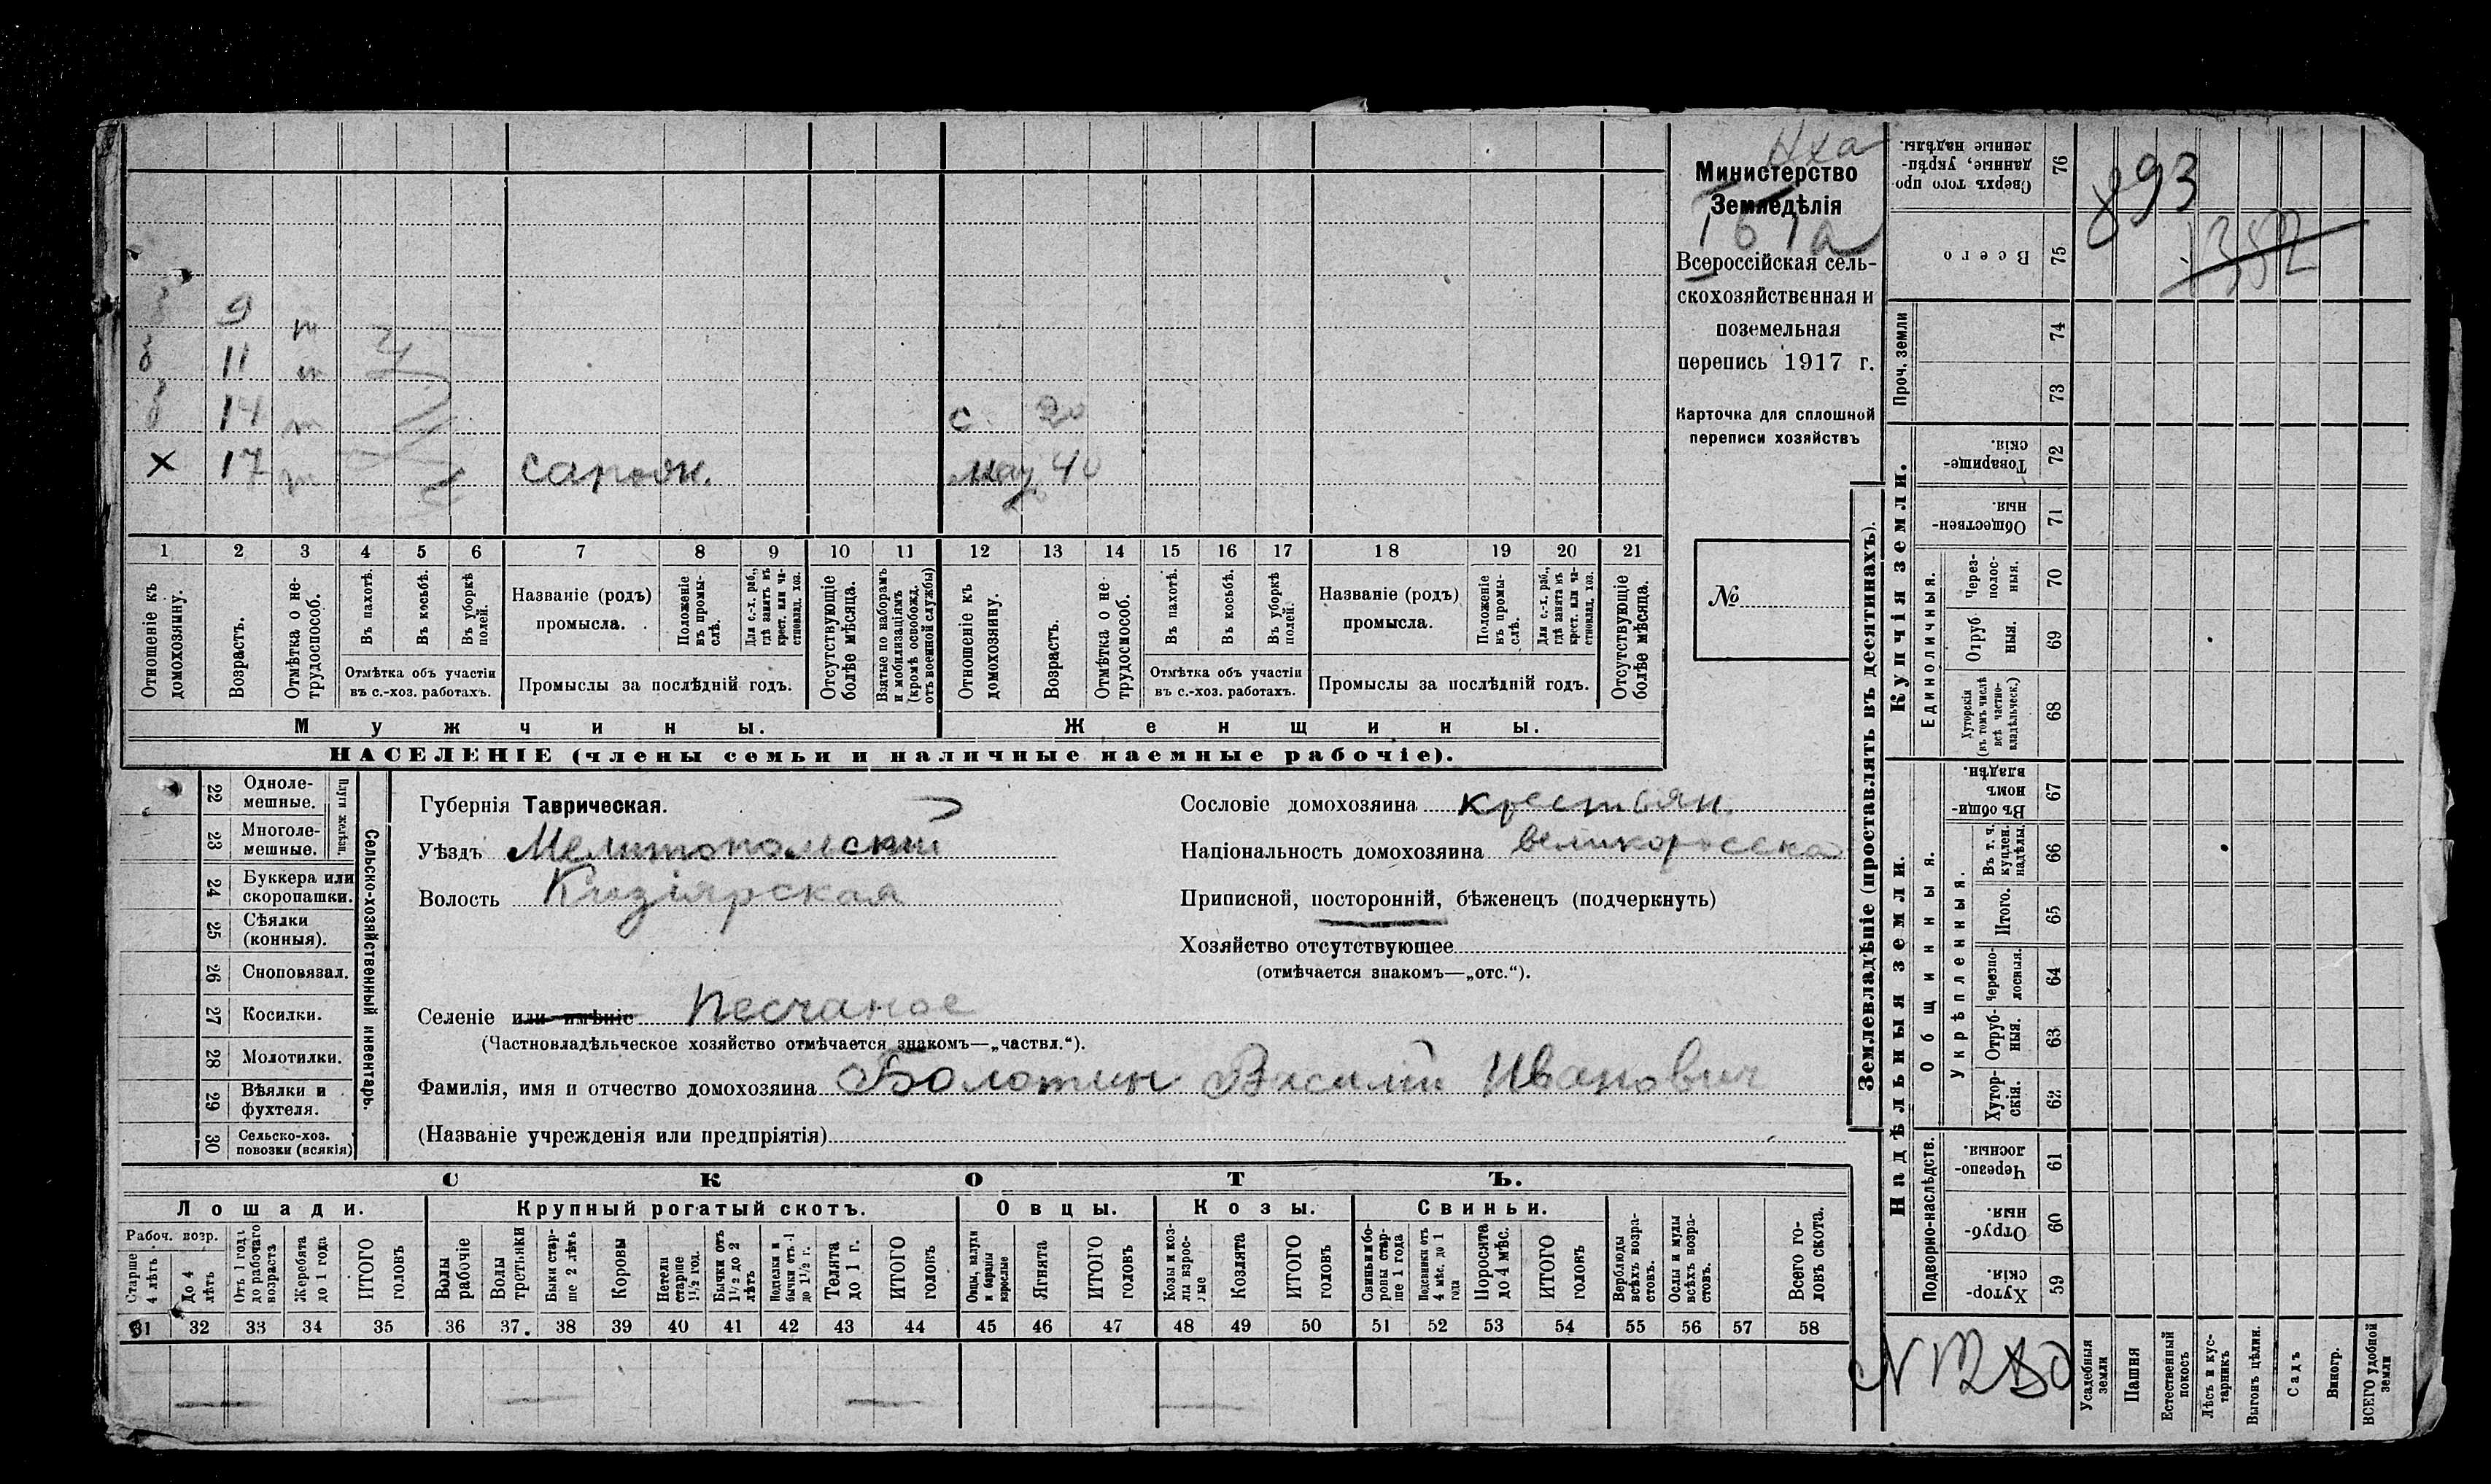 Министерство
Земледѣлія
Всероссійская сель-
скохозяйственная и
поземельная
перепись 1917 г.
Карточка для сплошной
переписи хозяйствъ
№
893
1382
9
11
14 с. 20
х 17 сапожн. 40
1 2 3 4 5 6 7 8 9 10 11 12 13 14 15 16 17 18 19 20 21
Отношеніе къ домохозяину.
Возрастъ.
Отмѣтка о не-трудоспособ.
Въ пахотѣ.
Въ косьбѣ.
Въ уборкѣ полей.
Отмѣтка объ участіи
въ с.-хоз. работахъ.
Названіе (родъ)
промысла.
Положеніе въ промы-слѣ.
Для с.-х. раб., гдѣ занятъ въ крест. или ча-стновлад. хоз.
Промыслы за послѣдній годъ.
Отсутствующіе болѣе мѣсяца.
Взятые по наборамъ и мобилизаціямъ (кромѣ освобожд. отъ военной службы)
Отношеніе къ домохозяину.
Возрастъ.
Отмѣтка о не-трудоспособ.
Въ пахотѣ.
Въ косьбѣ.
Въ уборкѣ полей.
Отмѣтка объ участіи
въ с.-хоз. работахъ.
Названіе (родъ)
промысла.
Положеніе въ промы-слѣ.
Для с.-х. раб., гдѣ занята въ крест. или ча-стновлад. хоз.
Промыслы за послѣдній годъ.
Отсутствующіе болѣе мѣсяца.
Мужчины. Женщины.
НАСЕЛЕНІЕ (члены семьи и наличные наемные рабочіе).
22 Одноле-мешные.
23 Многоле-мешные.
Плуги желѣзн.
24 Буккера или скоропашки.
25 Сѣялки (конныя).
26 Сноповязал.
27 Косилки.
28 Молотилки.
29 Вѣялки и фухтеля.
30 Сельско-хоз. повозки (всякія)
Сельско-хозяйственный инвентарь.
Губернія Таврическая.
Уѣздъ Мелитопольскій
Волость Кизіярская
Селеніе или имѣніе Песчаное
(Частновладѣльческое хозяйство отмѣчается знакомъ—„частвл.“).
Фамилія, имя и отчество домохозяина Болотин Василій Иванович
(Названіе учрежденія или предпріятія)
Сословіе домохозяина крестьян.
Національность домохозяина великоросска
Приписной, посторонній, бѣженец (подчеркнуть)
Хозяйство отсутствующее
(отмѣчается знакомъ—„отс.“).
СКОТЪ.
Лошади. Крупный рогатый скотъ. Овцы. Козы. Свиньи.
Рабоч. возр.
Старше 4 лѣтъ
До 4 лѣтъ
Отъ 1 года до рабочаго возраста
Жеребята до 1 года
ИТОГО головъ
Волы рабочіе
Волы третьяки
Быки стар-ше 2 лѣтъ
Коровы
Нетели старше 1½ год.
Бычки отъ 1½ до 2 лѣтъ
Подтелки и бычки отъ 1 до 1½ г.
Телята до 1 г.
ИТОГО головъ
Овцы, валухи и бараны взрослые
Ягнята
ИТОГО головъ
Козы и коз-лы взрос-лые
Козлята
ИТОГО головъ
Свиньи и бо-ровы стар-ше 1 года
Подсвинки отъ 4 мѣс. до 1 года
Поросята до 4 мѣс.
ИТОГО головъ
Верблюды всѣхъ возра-стовъ.
Ослы и мулы всѣхъ возра-стовъ.
Всего го-ловъ скота.
31 32 33 34 35 36 37 38 39 40 41 42 43 44 45 46 47 48 49 50 51 52 53 54 55 56 57 58
Землевладѣніе (проставлять въ десятинахъ).
Купчія земли.
Надѣльныя земли.
Сверхъ того про-данные, укрѣп-ленные надѣлы. 76
Всего 75
Проч. земли 74
73
Товарище-скія. 72
Обществен-ныя 71
Единоличныя.
Через-полос-ныя. 70
Отруб-ныя. 69
Хуторскія (въ томъ числѣ всѣ частно-владѣльческ.) 68
Общинныя.
Въ общин-номъ владѣн. 67
Укрѣпленныя.
Въ т. ч. куплен. надѣлы. 66
Итого. 65
Черезпо-лосныя. 64
Отруб-ныя. 63
Хутор-скія. 62
Подворно-наслѣдств.
Черезпо-лосныя. 61
Отруб-ныя. 60
Хутор-скія 59
Усадебныя земли
Пашня
Естественный покосъ
Лѣсъ и кус-тарникъ
Выгонъ цѣлин.
Садъ
Виногр.
ВСЕГО удобной земли